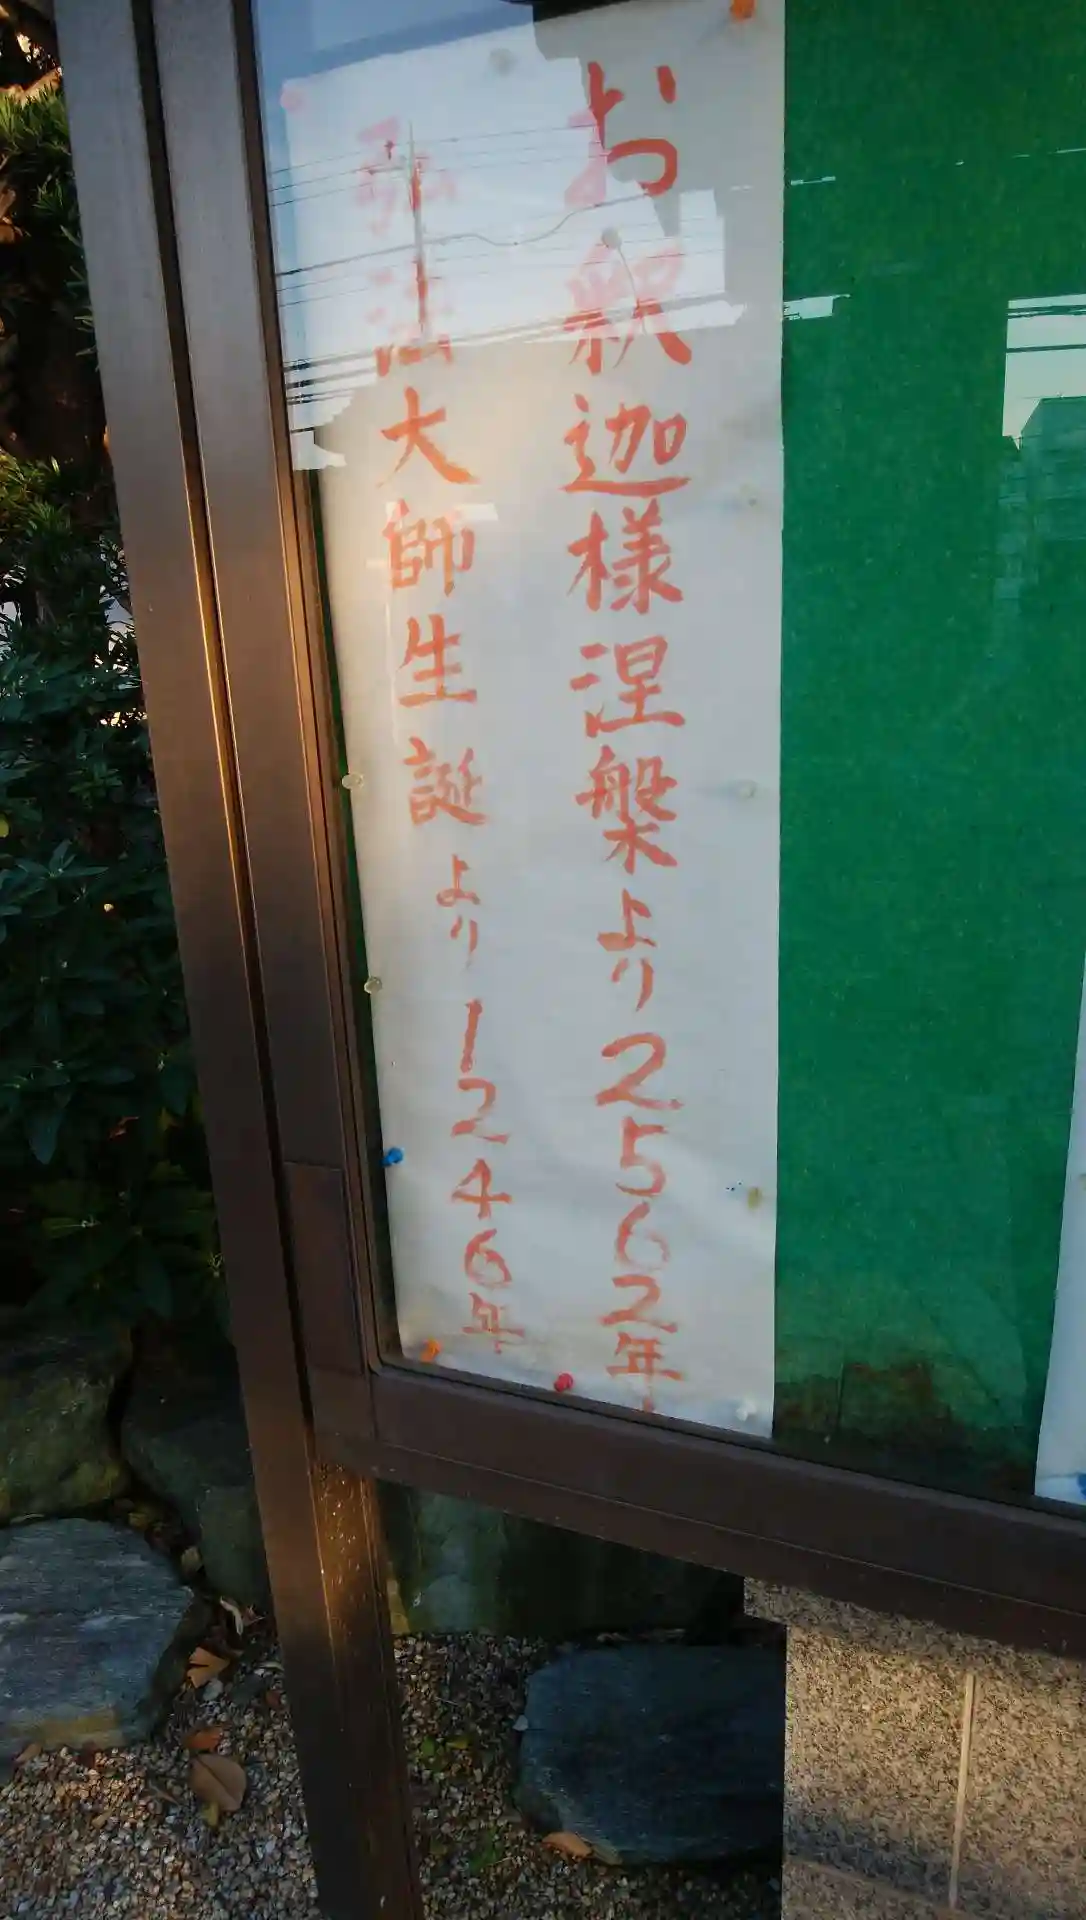 お釈迦様涅槃より2562年
弘法大師生誕より1246年